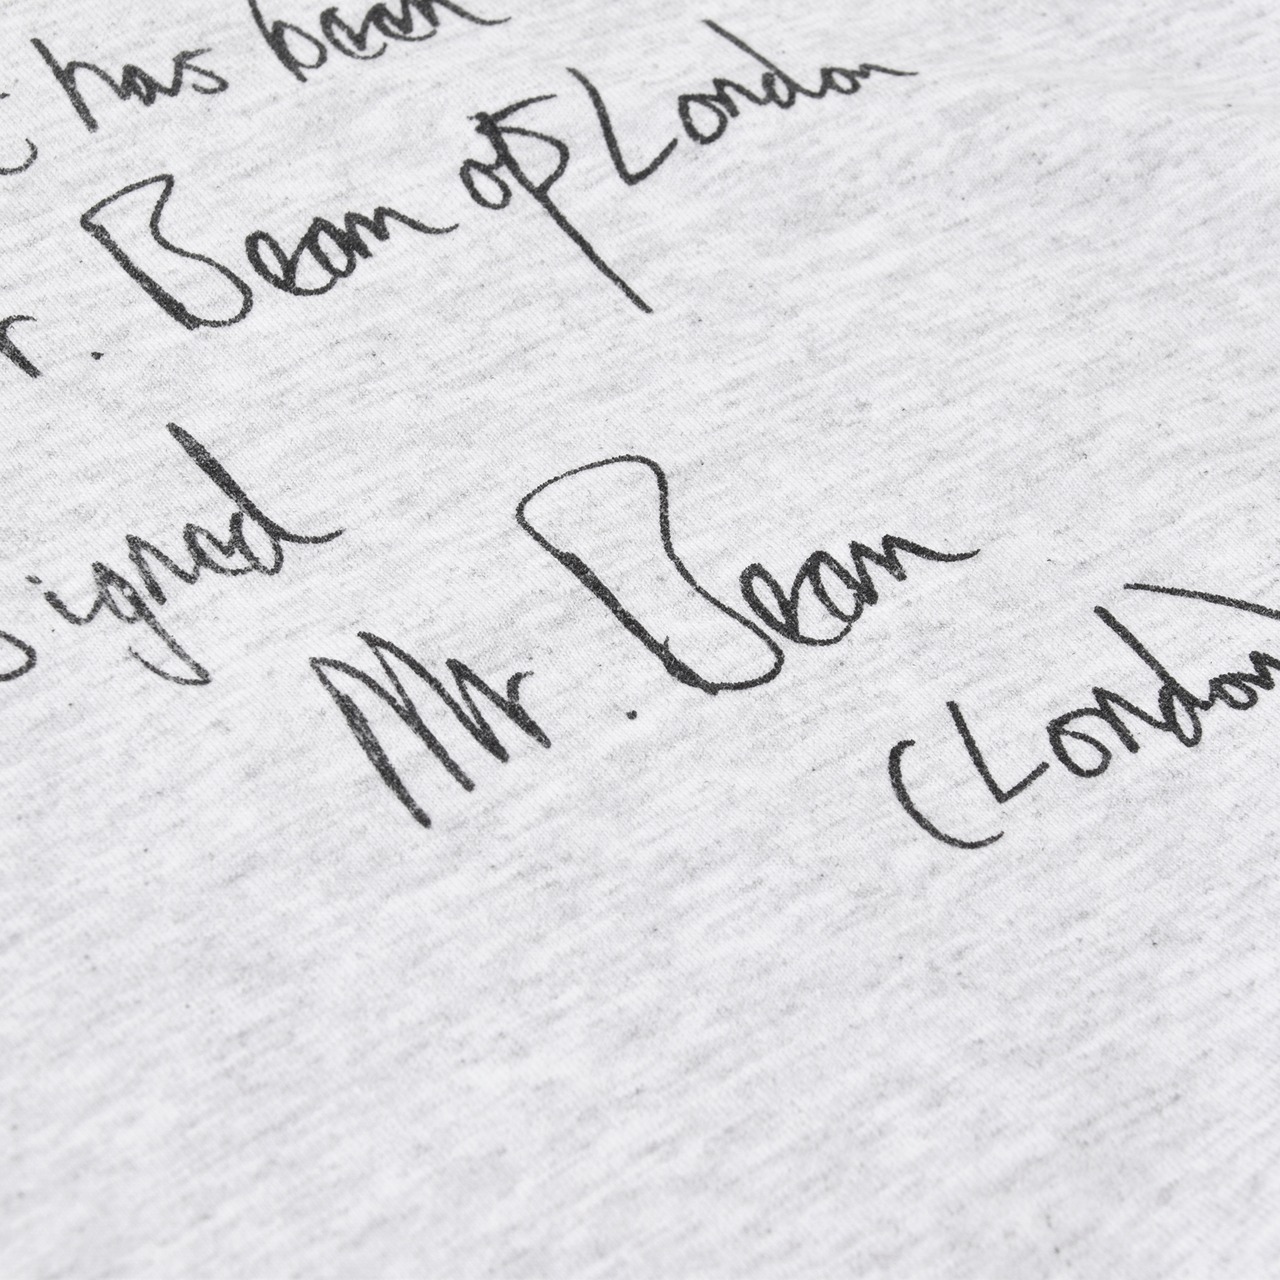 has been
r. Bean of London
signed
Mr. Bean
(London)